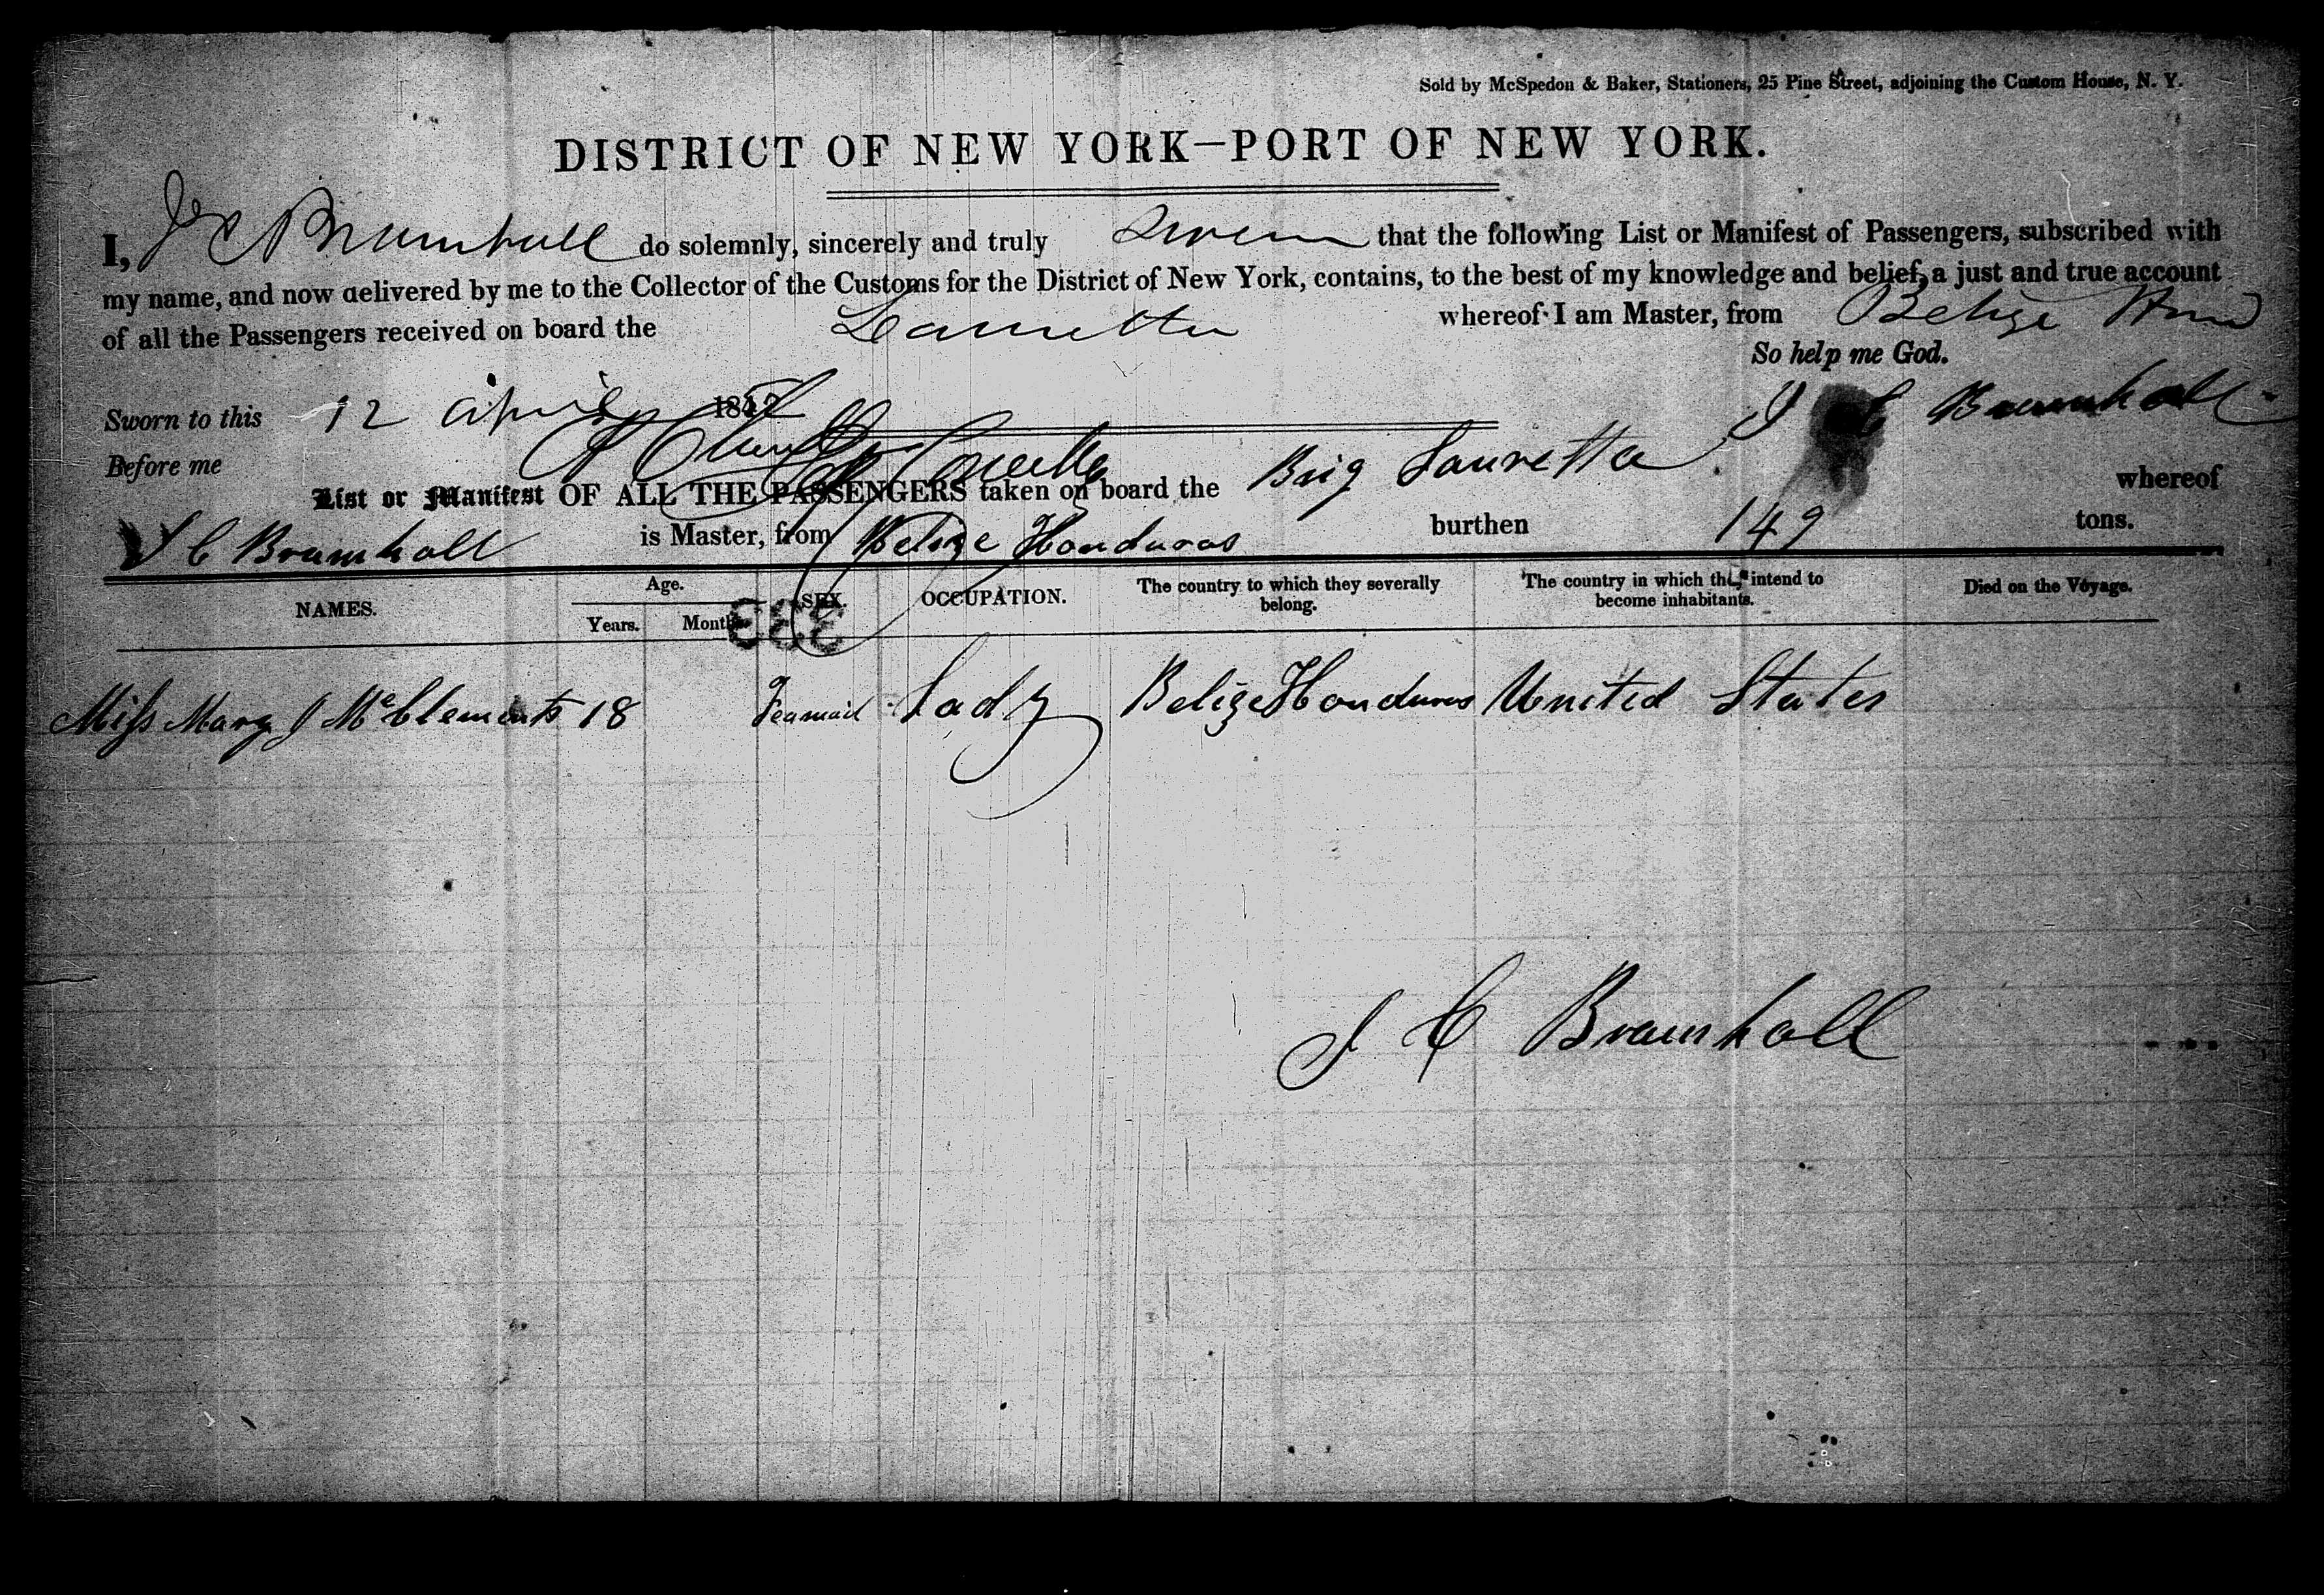 Sold by McSpedon & Baker, Stationers, 25 Pine Street, adjoining the Custom House, N. Y.
DISTRICT OF NEW YORK—PORT OF NEW YORK.
I, J C Bramhall do solemnly, sincerely and truly swear that the following List or Manifest of Passengers, subscribed with
my name, and now delivered by me to the Collector of the Customs for the District of New York, contains, to the best of my knowledge and belief, a just and true account
of all the Passengers received on board the Lauretta whereof I am Master, from Belize Hond
So help me God.
Sworn to this 12 April 184 J C Bramhall
Before me
List or Manifest OF ALL THE PASSENGERS taken on board the Brig Lauretta whereof
J C Bramhall is Master, from Belize Honduras burthen 149 tons.
NAMES. Age. Years. Months. SEX. OCCUPATION. The country to which they severally belong. The country in which they intend to become inhabitants. Died on the Voyage.
333
Miss Mary J McClements 18 Feamail Lady Belize Honduras United States
J C Bramhall